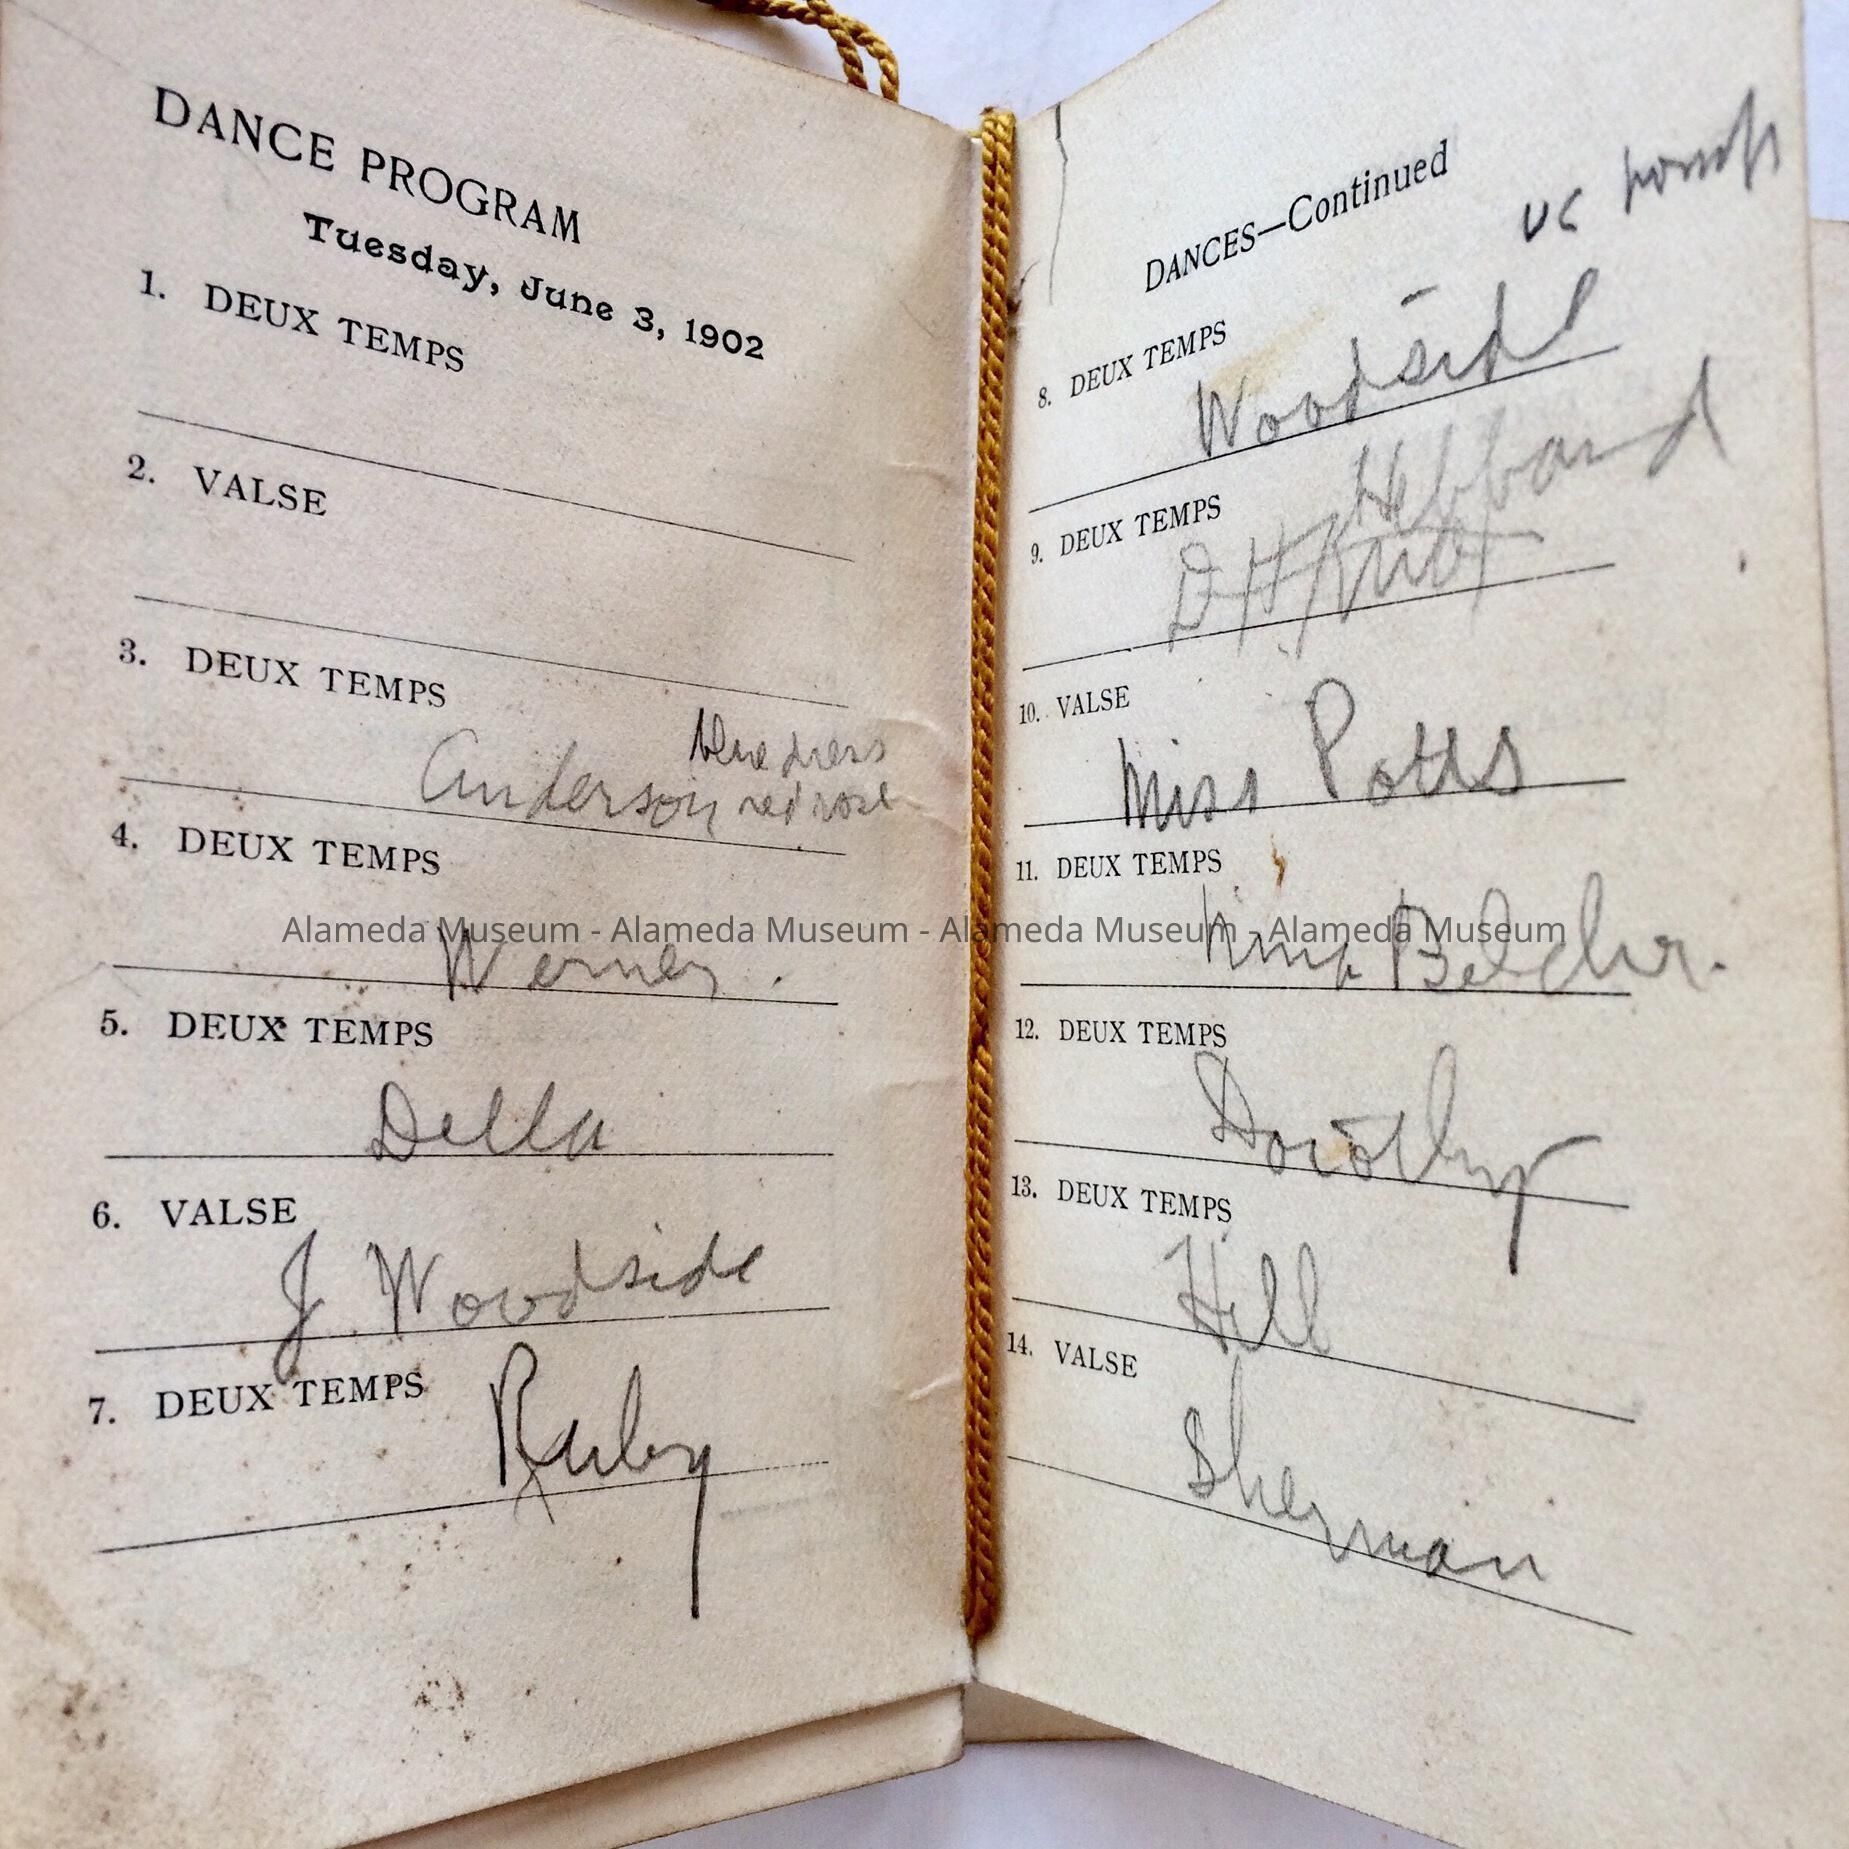 DANCE PROGRAM
Tuesday, June 3, 1902
1. DEUX TEMPS
2. VALSE
3. DEUX TEMPS
blue dress
Anderson red rose
4. DEUX TEMPS
Werner.
5. DEUX TEMPS
Della
6. VALSE
J Woodside
7. DEUX TEMPS
Ruby
DANCES—Continued
UC
8. DEUX TEMPS
Woodside
Hebbard
9. DEUX TEMPS
D H Knox
10. VALSE
Miss Potts
11. DEUX TEMPS
Belcher.
12. DEUX TEMPS
Dorothy
13. DEUX TEMPS
Hill
14. VALSE
Sherman
Alameda Museum - Alameda Museum - Alameda Museum - Alameda Museum